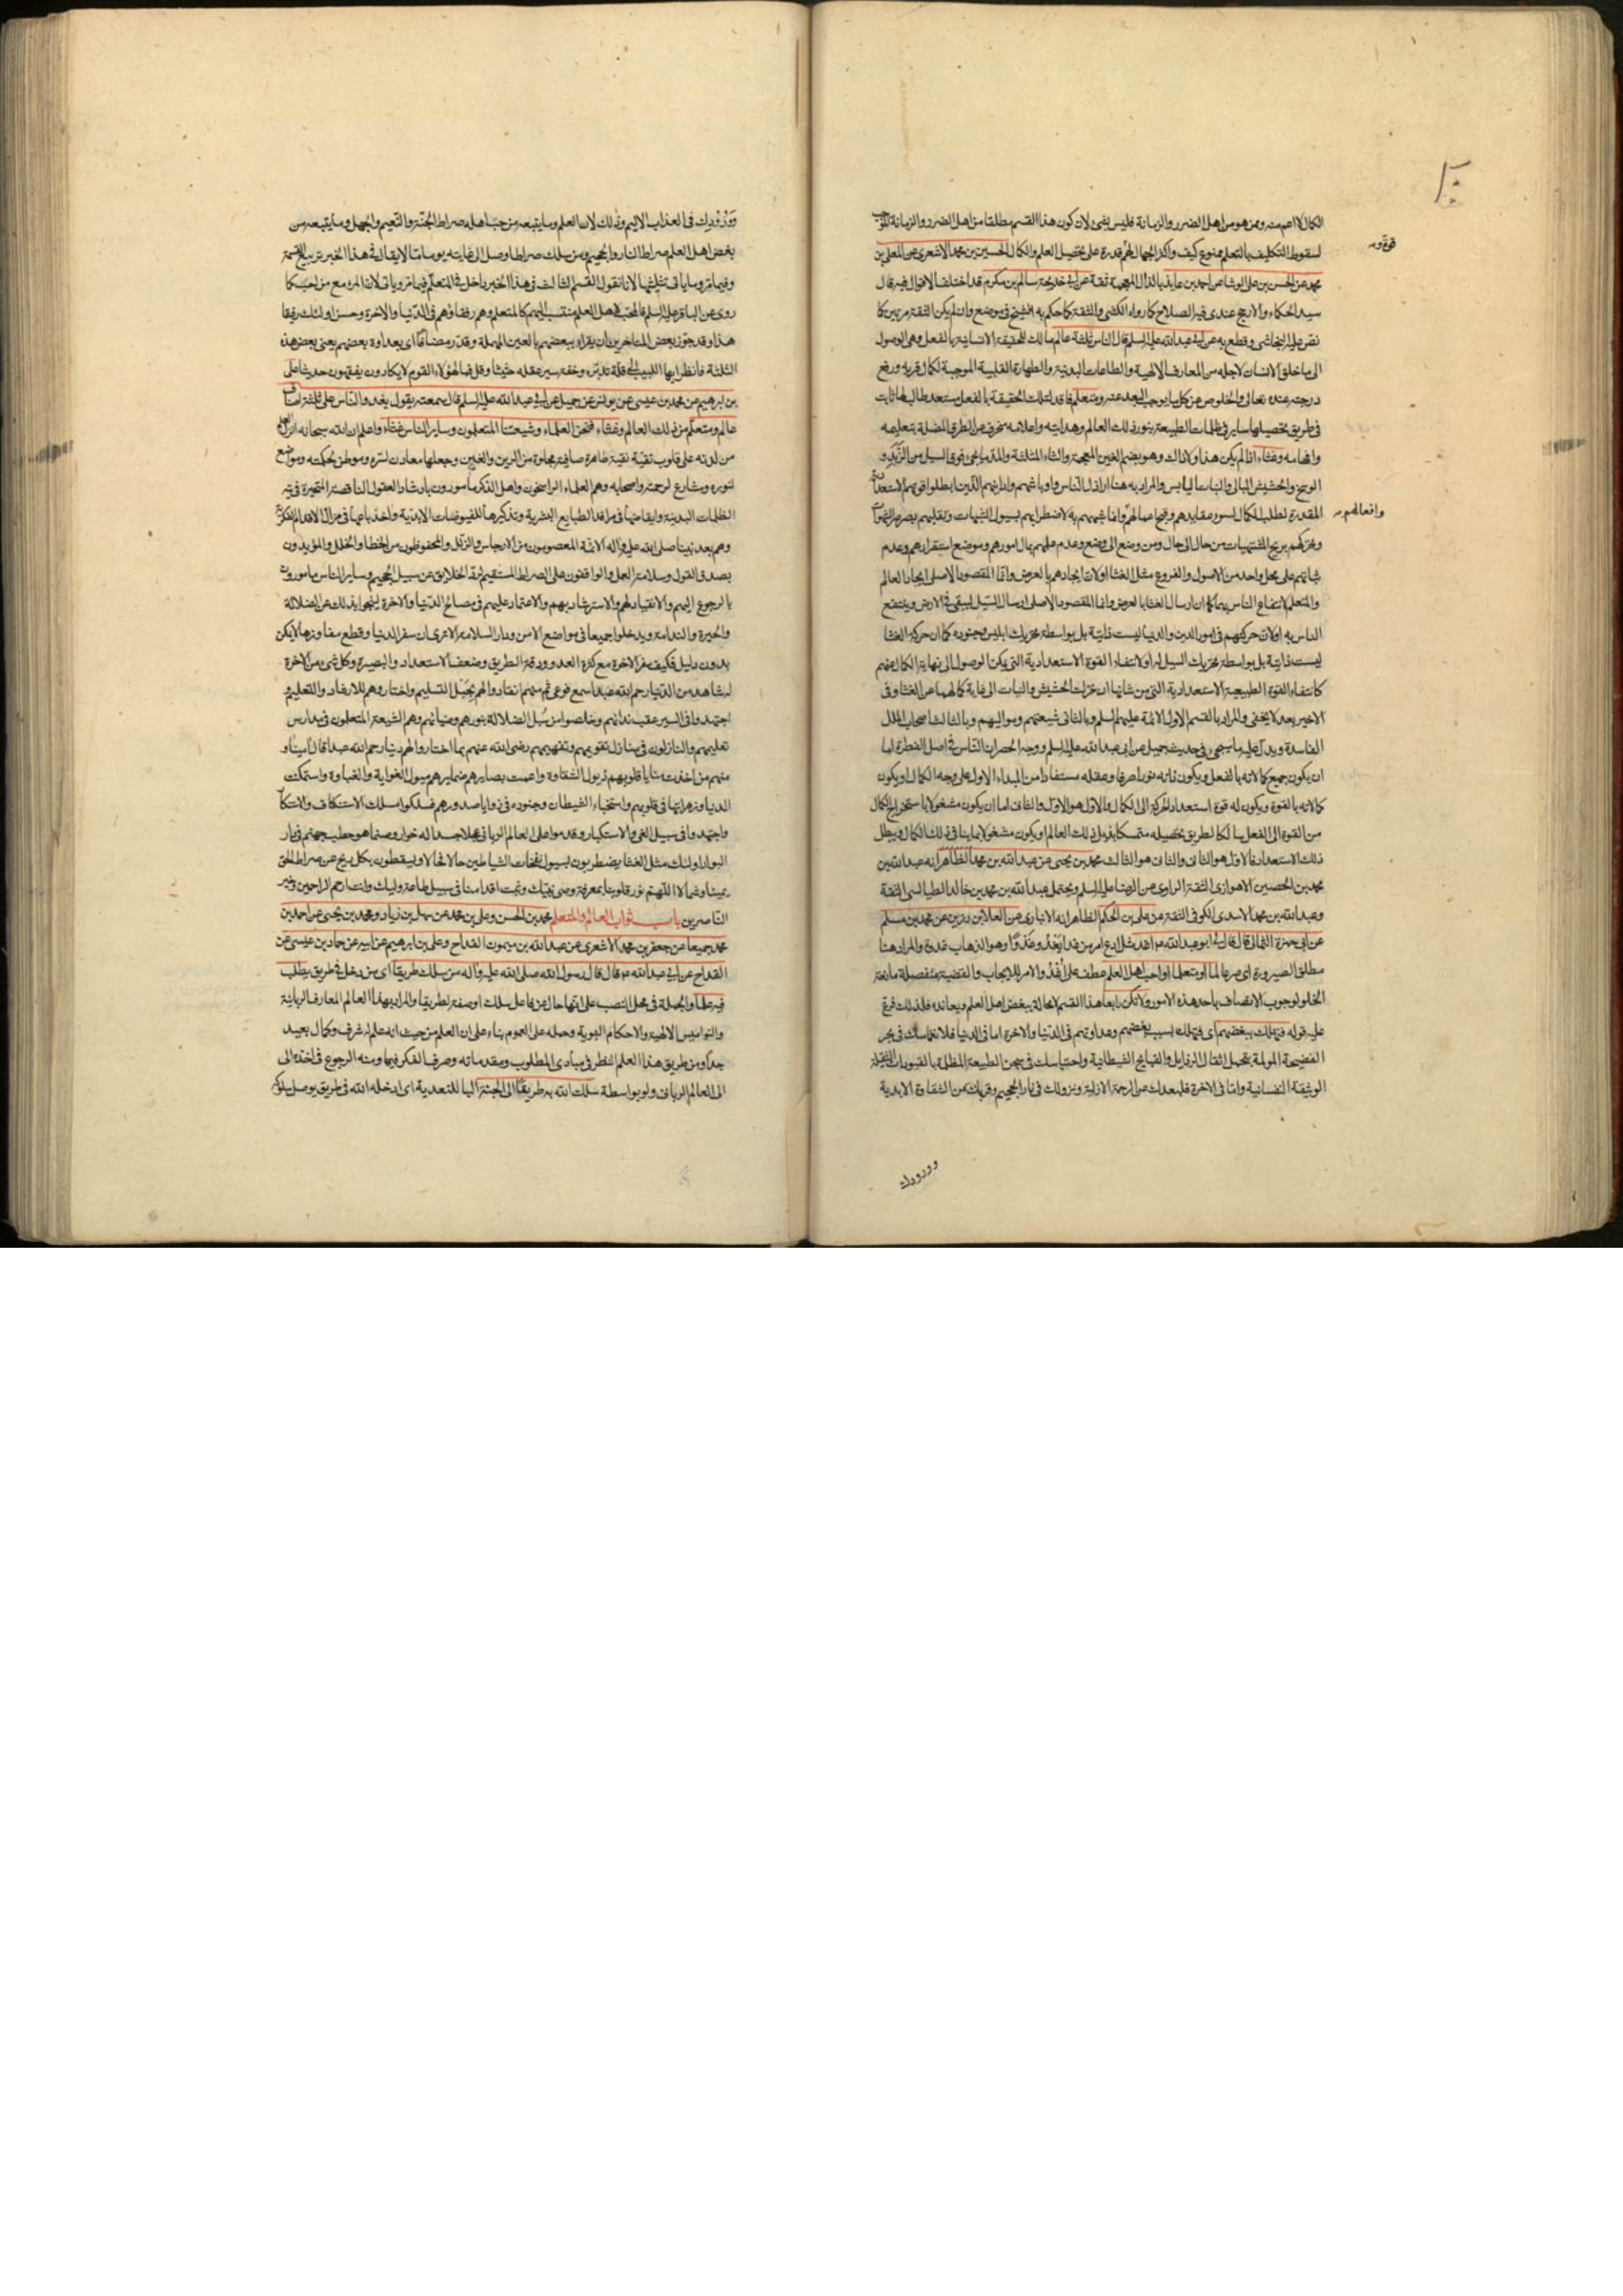 الكمال لا اعم منه وممن هو من اهل الضرر والزمانة فليس بشئ لان كون هذا القسم مطلقا من اهل الضرر والزمانة الموجب
لسقوط التكليف بالتعلم ممنوع كيف واكثر الجهال لهم قدرة على تحصيل العلم والكمال الحسين بن محمد الاشعرى عن المعلى بن
قوة ومـ
محمد عن الحسن بن على الوشاء عن احمد بن عايذ بالذال المعجمة ثقة عن ابى خديجة سالم بن مكرم قد اختلف الاقوال فيه قال
سيد الحكماء والارجح عندى فيه الصلاح كما رواه الكشى والثقة كما حكم به الشيخ فى موضع وان لم يكن الثقة مرتين كما
نص عليه النجاشى وقطع به عن ابى عبد الله عليه السلم قال الناس ثلثة عالم مالك للحقيقة الانسانية بالفعل وهى الوصول
الى ما خلق الانسان لاجله من المعارف الالهية والطاعات البدنية والطهارة القلبية الموجبة لكمال قربه ورفع
درجته عنده تعالى والخلوص عن كل ما يوجب البعد عنه ومتعلم فاقد لتلك الحقيقة بالفعل مستعد طالب لها ثابت
فى طريق تحصيلها ساير فى ظلمات الطبيعة بنور ذلك العالم وهدايته واعلامه منحرف عن الطرق المضلة بتعليمه
وافهامه وغثاء اذا لم يكن هذا ولا ذاك وهو بضم الغين المعجمة والثاء المثلثة والمد ما يجئ فوق السيل من الزبد و
الوسخ والحشيش البالى والنبات اليابس والمراد به هنا اراذل الناس واوباشهم وادانيهم الذين ابطلوا قوتهم الاستعدادية
المقدرة لطلب الكمال بسوء عقايدهم وقبح اعمالهم وانما شبههم به لاضطرابهم بسيول الشبهات وتقلبهم بصرصر الشهوات
وافعالهم مـ
وتحركهم بريح المشتهيات من حال الى حال ومن وضع الى وضع وعدم علمهم بمآل امورهم وموضع استقرارهم وعدم
ثباتهم على محل واحد من الاصول والفروع مثل الغثا اولان ايجادهم بالعرض وانما المقصود الاصلى ايجاد العالم
والمتعلم لانتفاع الناس بهما كما ان ارسال الغثا بالعرض وانما المقصود الاصلى ارسال السيل ليبقى فى الارض وينتفع
الناس به اولان حركتهم فى امور الدين والدنيا ليست ذاتية بل بواسطة تحريك ابليس وجنوده كما ان حركة الغثا
ليست ذاتية بل بواسطة تحريك السيل له اولا نتفاء القوة الاستعدادية التى يمكن الوصول الى نهاية الكمال عنهم
كانتفاء القوة الطبيعية الاستعدادية التى من شانها ان تحرك الحشيش والنبات الى غاية كمالهما عن الغثا وفى
الاخير بعد لا يخفى والمراد بالقسم الاول الائمة عليهم السلم وبالثانى شيعتهم ومواليهم وبالثالث اصحاب الملل
الفاسدة ويدل عليه ما سيجئ فى حديث جميل عن ابى عبد الله عليه السلم ووجه الحصر ان الناس فى اصل الفطرة اما
ان يكون جميع كمالاته بالفعل ويكون ذاته نورا صرفا وعقله مستفادا من المبداء الاول على وجه الكمال او يكون
كمالاته بالقوة ويكون له قوة استعداد الحركة الى الكمال والاول هو الاول والثانى اما ان يكون مشغولا باستخراج الكمال
من القوة الى الفعل سالكا لطريق تحصيله متمسكا بذيل ذلك العالم او يكون مشغولا بما ينافى ذلك الكمال ويبطل
ذلك الاستعداد فالاول هو الثانى والثانى هو الثالث محمد بن يحيى عن عبد الله بن محمد الظاهر انه عبد الله بن
محمد بن الحصين الاهوازى الثقة الراوى عن الرضا عليه السلم ويحتمل عبد الله بن محمد بن خالد الطيالسى الثقة
وعبد الله بن محمد الاسدى الكوفى الثقة عن على بن الحكم الظاهر انه الانبارى عن العلا بن رزين عن محمد بن مسلم
عن ابى حمزة الثمالى قال قال لى ابو عبد الله ع اغد مثل ادع امر من غدا يَغْدُو غدُوًّا وهو الذهاب غدوة والمراد هنا
مطلق الصيرورة اى صر عالما او متعلما او احب اهل العلم عطف على اُغْدُ والامر للايجاب والقضية منفصلة مانعة
الخلو لوجوب الاتصاف باحد هذه الامور ولا تكن رابعا هذا القسم لا محالة يبغض اهل العلم ويعانده فلذلك فرع
عليه قوله فتهلك ببغضهم اى فتهلك بسبب بغضهم وعداوتهم فى الدنيا والاخرة اما فى الدنيا فلانغماسك فى بحر
الفضيحة المولمة بتحمل اثقال الرذايل والقبايح الشيطانية واحتباسك فى سجن الطبيعة المظلمة بالقيودات الثقيلة
الوثيقة النفسانية واما فى الاخرة فلبعدك عن الرحمة الازلية ونزولك فى نار الجحيم وقربك من الشقاوة الابدية
وورودك
وَوُرُودِك فى العذاب الاليم وذلك لان العلم وما يتبعه من حب اهله صراط الجنة والنعيم والجهل وما يتبعه من
بغض اهل العلم صراط النار والجحيم ومن سلك صراطا وصل الى غايته يوما ما لا يقال فى هذا الخبر تربيع القسمة
وفيما مر وما ياتى تثليثها لانا نقول القسم الثالث فى هذا الخبر داخل فى المتعلم فيما مر وياتى لان المرء مع من احب كما
روى عن الباقر عليه السلم فالمحب لاهل العلم منتسب اليهم كالمتعلم وهم رفقاؤهم فى الدنيا والاخرة وحسن اولئك رفيقا
هذا وقد جوز بعض المتاخرين ان يقراء ببعضهم بالعين المهملة وقدر مضافا اى بعداوة بعضهم يعنى بعض هذه
الثلثة فانظر ايها اللبيب الى قلة تدبره وخفة سير عقله حثيثا وقل فما لهؤلاء القوم لا يكادون يفقهون حديثا على
بن ابرهيم عن محمد بن عيسى عن يونس عن جميل عن ابى عبد الله عليه السلم قال سمعته يقول يغدو الناس على ثلثة اصناف
عالم ومتعلم من ذلك العالم وغثاء فنحن العلماء وشيعتنا المتعلمون وساير الناس غثاء واعلم ان الله سبحانه انزل العلم
من لدنه على قلوب تقية نقية طاهرة صافية مجلوة من الرين والغين وجعلها معادن لسره وموطن لحكمته ومواضع
لنوره ومشارع لرحمته واصحابه وهم العلماء الراسخون واهل الذكر مامورون بارشاد العقول الناقصة المتحيرة فى تيه
الظلمات البدنية وايقاظها فى مراقد الطبايع البشرية وتذكيرها للفيوضات الابدية واخذ باعها فى مزال الاقدام الفكرية
وهم بعد نبينا صلى الله عليه واله الائمة المعصومون من الارجاس والزلل والمحفوظون من الخطا والخلل والمؤيدون
بصدق القول وسلامة العمل والواقفون على الصراط المستقيم لرد الخلايق عن سبيل الجحيم وساير الناس مامورون
بالرجوع اليهم والانقياد لهم والاسترشاد بهم والاعتماد عليهم فى مصالح الدنيا والاخرة لينجوا بذلك عن الضلالة
والحيرة والندامة ويدخلوا جميعا فى مواضع الامن ودار السلامة الا ترى ان سفر الدنيا وقطع مفاوزها لا يمكن
بدون دليل فكيف سفر الاخرة مع كثرة العدو ودقة الطريق وضعف الاستعداد والبصيرة وكل شئ من الاخرة
له شاهد من الدنيا رحم الله عبدا سمع فوعى ثم منهم انقادوا لهم بحبل التسليم واختاروهم للارشاد والتعليم و
اجتهدوا فى السير عقب ندائهم وخلصوا من سُبل الضلالة بنورهم وضيائهم وهم الشيعة المتعلمون فى مدارس
تعليمهم والنازلون فى منازل تقويمهم وتفهيمهم رضى الله عنهم بما اختاروا لهم دينا رحم الله عبدا قال آمينا و
منهم من اخذت بثنايا قلوبهم نزول الشقاوة واعمت بصايرهم ضمايرهم سيول الغواية والغباوة واستمكنت
الدنيا وزهراتها فى قلوبهم واستخباء الشيطان وجنوده فى زوايا صدورهم فسلكوا مسلك الاستنكاف والاتكا
واجتهدوا فى سبيل الغى والاستكبار وقدموا على العالم الربانى عجلا جسدا له خوار وصنما هو حطب جهنم فى دار
البوار اولئك مثل الغثا يضطربون بسيول نفخات الشياطين حالا فحالا ويسقطون بكل ريح عن صراط الحق
يمينا وشمالا اللهم نور قلوبنا بمعرفة وصى نبيك وثبت اقدامنا فى سبيل طاعة وليك وانت ارحم الراحمين وخير
الناصرين باب ثواب العالم والمتعلم محمد بن الحسن وعلى بن محمد عن سهل بن زياد ومحمد بن يحيى عن احمد بن
محمد جميعا عن جعفر بن محمد الاشعرى عن عبد الله بن ميمون القداح وعلى بن ابرهيم عن ابيه عن حماد بن عيسى عن
القداح عن ابى عبد الله ع قال قال رسول الله صلى الله عليه واله من سلك طريقا اى من دخل فى طريق يطلب
فيه علما والجملة فى محل النصب على انها حال عن فاعل سلك او صفة لطريقا والمراد بهذا العالم المعارف الربانية
والنواميس الالهية والاحكام النبوية وحمله على العموم بناء على ان العلم من حيث انه علم له شرف وكمال بعيد
جدا ومن طريق هذا العلم النظر فى مبادى المطلوب ومقدماته وصرف الفكر فيها ومنه الرجوع فى اخذه الى
الى العالم الربانى ولو بواسطة سلك الله به طريقا الى الجنة البا للتعدية اى ادخله الله فى طريق يوصل سلوكه